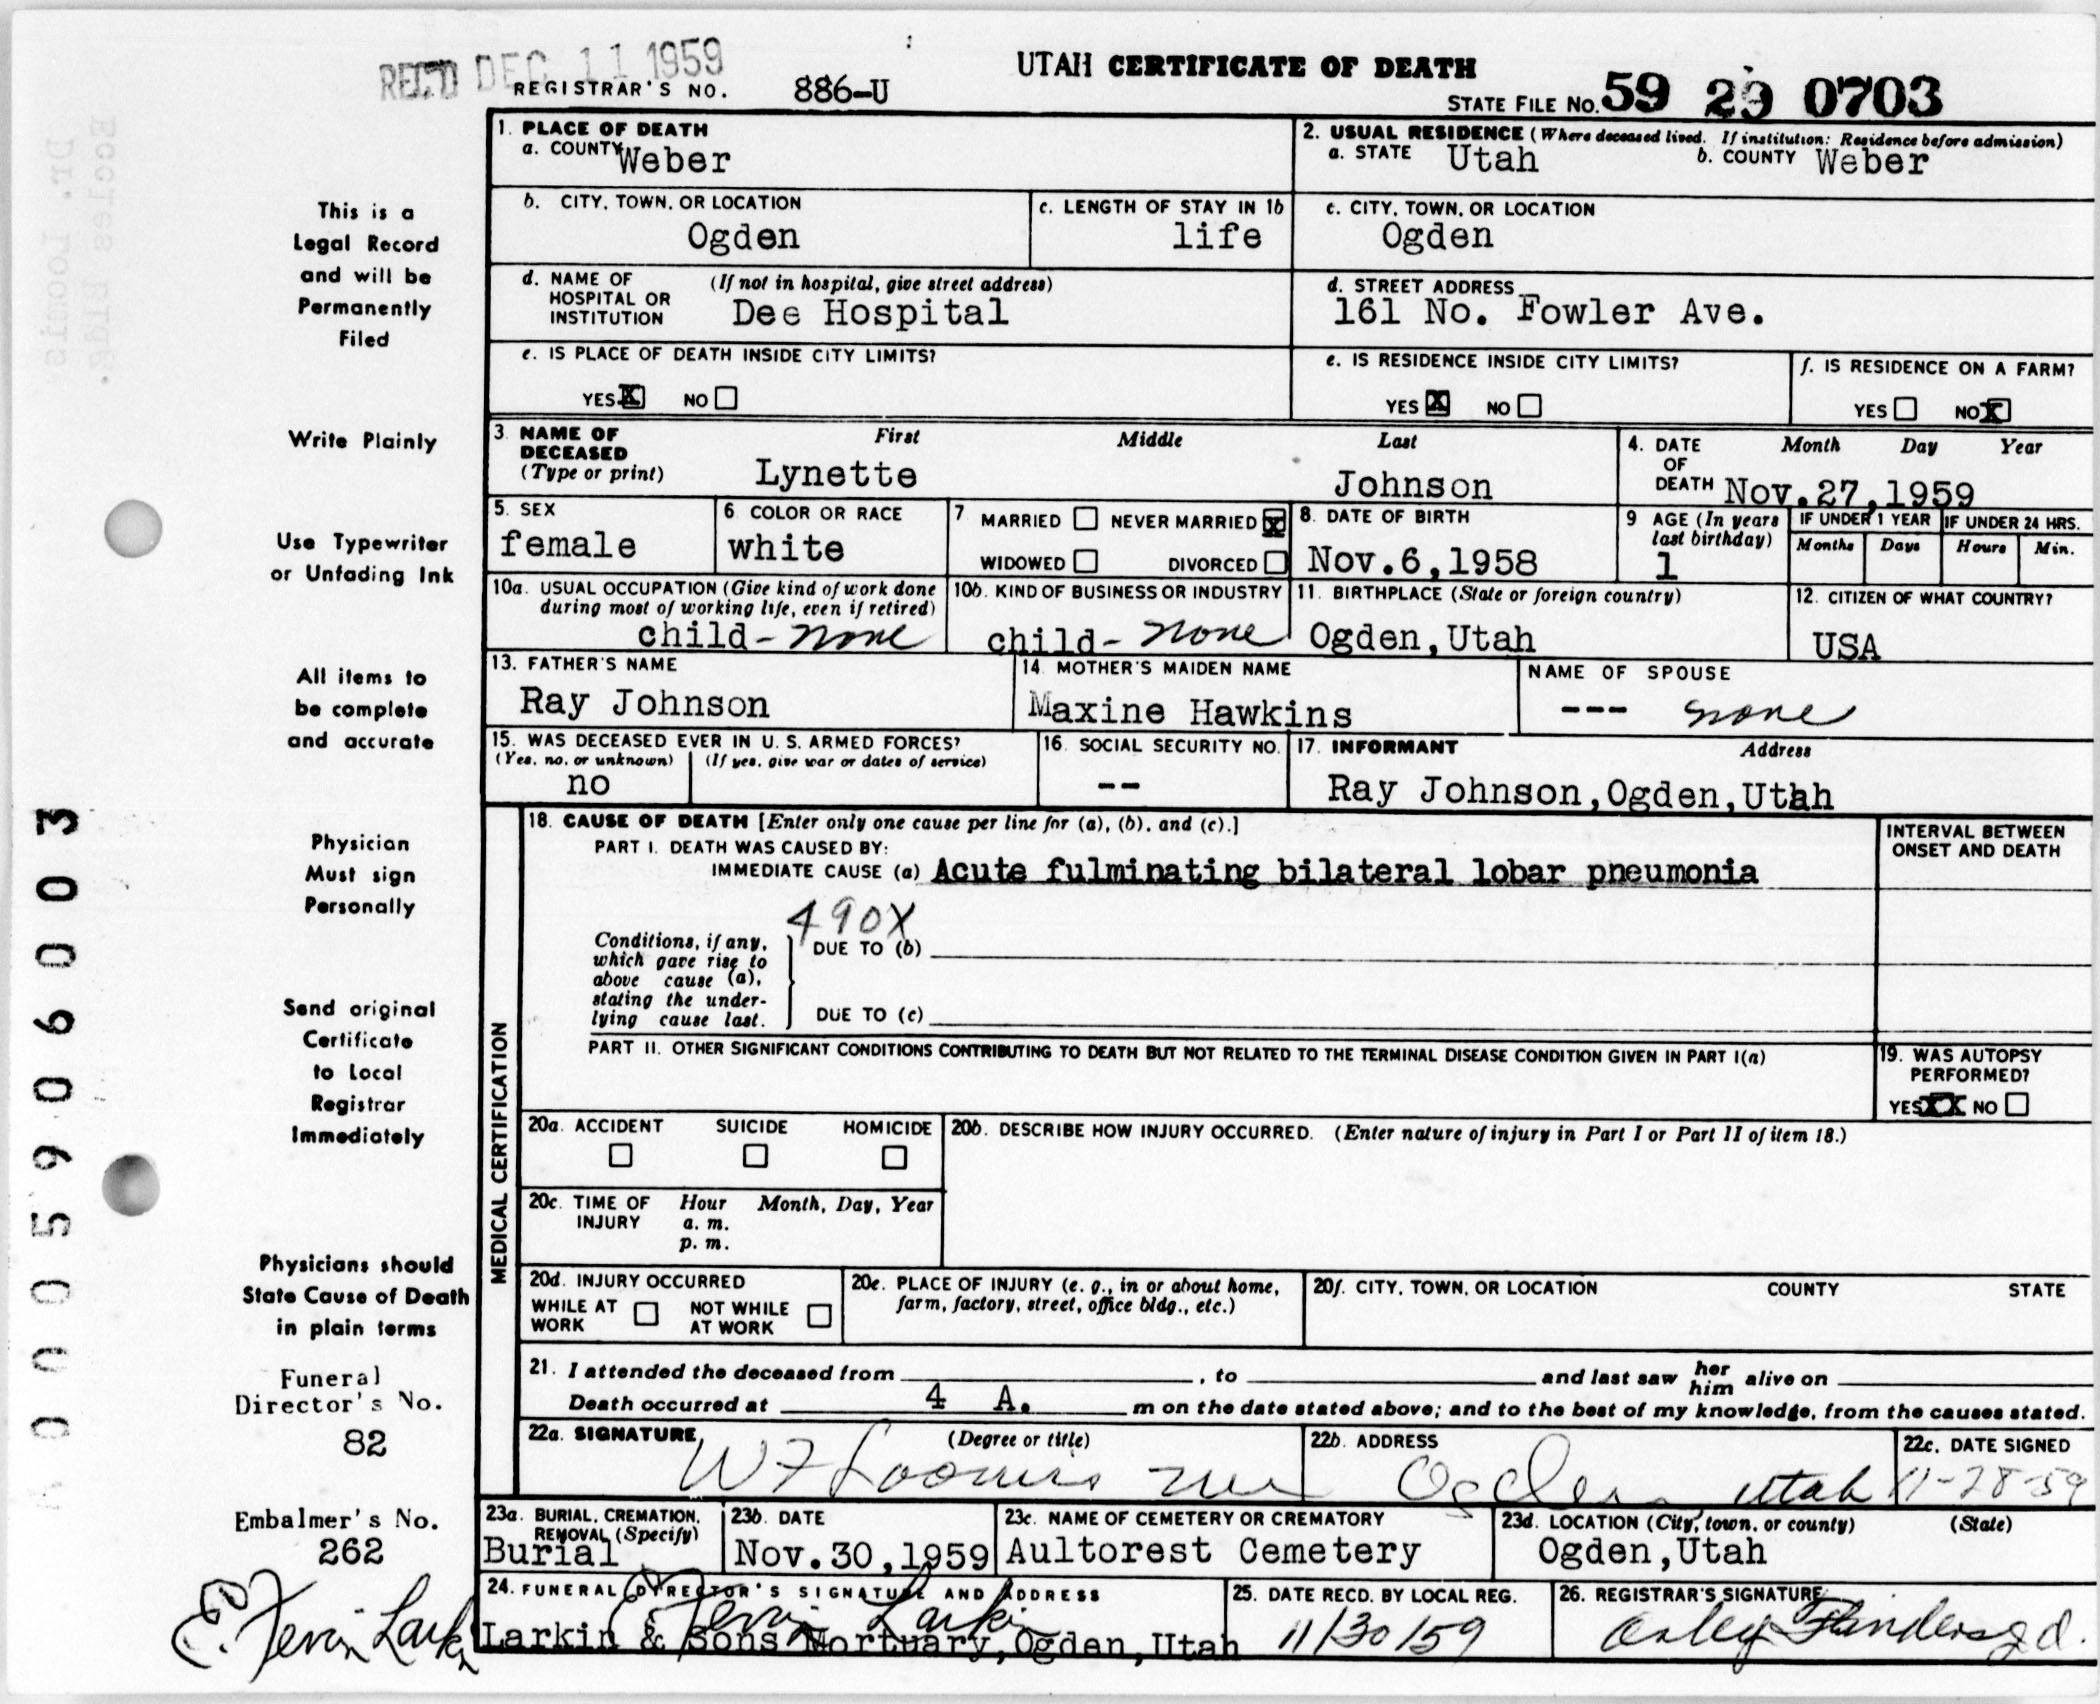 REC'D DEC 11 1959
REGISTRAR'S NO. 886-U
UTAH CERTIFICATE OF DEATH
STATE FILE NO. 59 29 0703
1. PLACE OF DEATH
a. COUNTY Weber
2. USUAL RESIDENCE (Where deceased lived. If institution: Residence before admission)
a. STATE Utah b. COUNTY Weber
b. CITY, TOWN, OR LOCATION
Ogden
c. LENGTH OF STAY IN 1b
life
c. CITY, TOWN, OR LOCATION
Ogden
d. NAME OF HOSPITAL OR INSTITUTION (If not in hospital, give street address)
Dee Hospital
d. STREET ADDRESS
161 No. Fowler Ave.
e. IS PLACE OF DEATH INSIDE CITY LIMITS?
YES X NO
e. IS RESIDENCE INSIDE CITY LIMITS?
YES X NO
f. IS RESIDENCE ON A FARM?
YES NO X
3. NAME OF DECEASED (Type or print)
First Middle Last
Lynette Johnson
4. DATE OF DEATH Month Day Year
Nov.27,1959
5. SEX
female
6. COLOR OR RACE
white
7. MARRIED NEVER MARRIED X
WIDOWED DIVORCED
8. DATE OF BIRTH
Nov.6,1958
9. AGE (In years last birthday)
1
IF UNDER 1 YEAR IF UNDER 24 HRS.
Months Days Hours Min.
10a. USUAL OCCUPATION (Give kind of work done during most of working life, even if retired)
child - none
10b. KIND OF BUSINESS OR INDUSTRY
child - none
11. BIRTHPLACE (State or foreign country)
Ogden,Utah
12. CITIZEN OF WHAT COUNTRY?
USA
13. FATHER'S NAME
Ray Johnson
14. MOTHER'S MAIDEN NAME
Maxine Hawkins
NAME OF SPOUSE
--- none
15. WAS DECEASED EVER IN U. S. ARMED FORCES?
(Yes, no, or unknown) (If yes, give war or dates of service)
no
16. SOCIAL SECURITY NO.
--
17. INFORMANT Address
Ray Johnson,Ogden,Utah
MEDICAL CERTIFICATION
18. CAUSE OF DEATH [Enter only one cause per line for (a), (b), and (c).]
PART I. DEATH WAS CAUSED BY:
IMMEDIATE CAUSE (a) Acute fulminating bilateral lobar pneumonia
INTERVAL BETWEEN ONSET AND DEATH
490X
Conditions, if any, which gave rise to above cause (a), stating the underlying cause last.
DUE TO (b)
DUE TO (c)
PART II. OTHER SIGNIFICANT CONDITIONS CONTRIBUTING TO DEATH BUT NOT RELATED TO THE TERMINAL DISEASE CONDITION GIVEN IN PART I(a)
19. WAS AUTOPSY PERFORMED?
YES XX NO
20a. ACCIDENT SUICIDE HOMICIDE
20b. DESCRIBE HOW INJURY OCCURRED. (Enter nature of injury in Part I or Part II of item 18.)
20c. TIME OF INJURY Hour Month, Day, Year
a. m.
p. m.
20d. INJURY OCCURRED
WHILE AT WORK NOT WHILE AT WORK
20e. PLACE OF INJURY (e. g., in or about home, farm, factory, street, office bldg., etc.)
20f. CITY, TOWN, OR LOCATION COUNTY STATE
21. I attended the deceased from , to and last saw her him alive on
Death occurred at 4 A. m on the date stated above; and to the best of my knowledge, from the causes stated.
22a. SIGNATURE (Degree or title)
W F Loomis
22b. ADDRESS
Ogden Utah
22c. DATE SIGNED
11-28-59
23a. BURIAL, CREMATION, REMOVAL (Specify)
Burial
23b. DATE
Nov.30,1959
23c. NAME OF CEMETERY OR CREMATORY
Aultorest Cemetery
23d. LOCATION (City, town, or county) (State)
Ogden,Utah
24. FUNERAL DIRECTOR'S SIGNATURE AND ADDRESS
E. Fervin Larkin
Larkin & Sons Mortuary,Ogden,Utah
25. DATE RECD. BY LOCAL REG.
11/30/59
26. REGISTRAR'S SIGNATURE
This is a
Legal Record
and will be
Permanently
Filed
Write Plainly
Use Typewriter
or Unfading Ink
All items to
be complete
and accurate
Physician
Must sign
Personally
Send original
Certificate
to Local
Registrar
Immediately
Physicians should
State Cause of Death
in plain terms
Funeral
Director's No.
82
Embalmer's No.
262
E. Fervin Larkin
000590603
Dr. Loomis
Eccles Bldg.